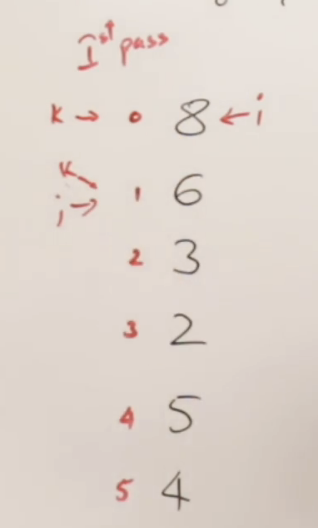 Ist pass
K → 0 8 ← i
K
j → 1 6
2 3
3 2
4 5
5 4